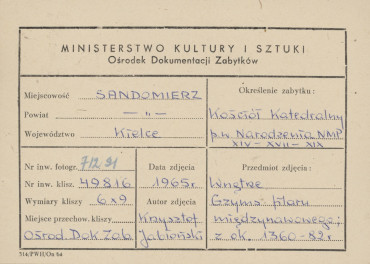 MINISTERSTWO KULTURY I SZTUKI
Ośrodek Dokumentacji Zabytków
Miejscowość SANDOMIERZ
Powiat — „ —
Województwo Kielce
Określenie zabytku :
Kościół Katedralny
p.w. Narodzenia NMP
XIV - XVII - XIX
Nr inw. fotogr. 71291
Nr inw. klisz. 49816
Wymiary kliszy 6x9
Miejsce przechow. kliszy
Ośrod. Dok. Zab.
Data zdjęcia
1965r.
Autor zdjęcia
Krzysztof
Jabłoński
Przedmiot zdjęcia :
Wnętrze
Gzyms filaru
międzynawowego;
z ok. 1360-82r.